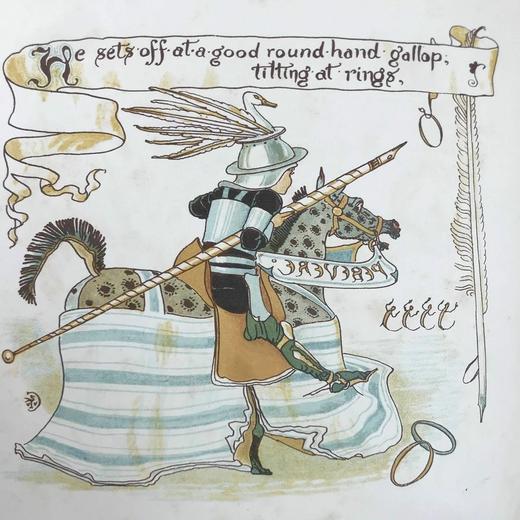 He sets·off·at·a·good round·hand·gallop,
tilting at·rings,
PERSEVERE